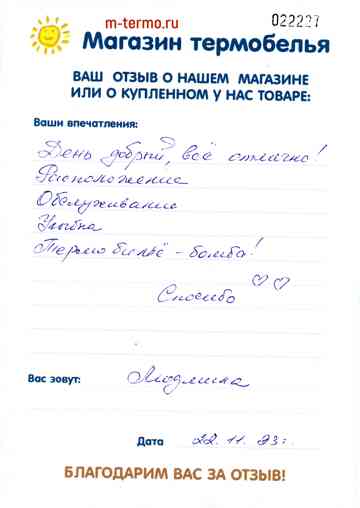 m-termo.ru
022227
Магазин термобелья
ВАШ ОТЗЫВ О НАШЕМ МАГАЗИНЕ
ИЛИ О КУПЛЕННОМ У НАС ТОВАРЕ:
Ваши впечатления:
День добрый, всё отлично!
Расположение
Обслуживание
Улыбка
Термо бельё - бомба!
Спасибо
Вас зовут: Людмила
Дата 22.11.23г.
БЛАГОДАРИМ ВАС ЗА ОТЗЫВ!